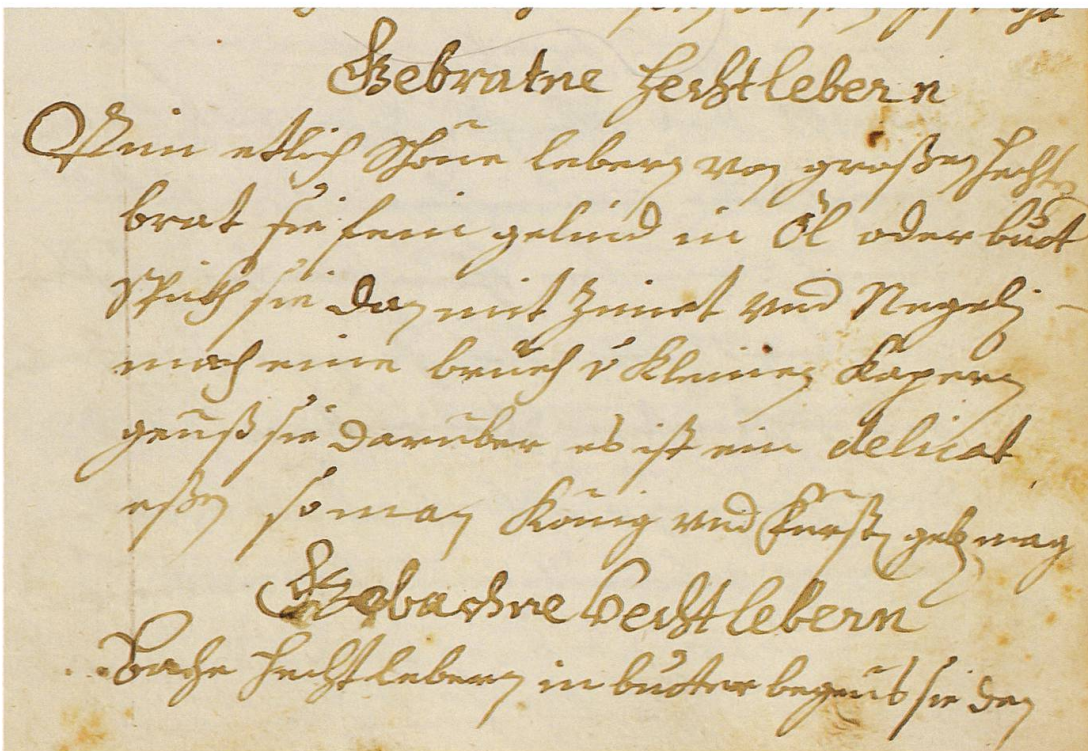 Gebratne Hechtlebern
Nim etlich schöne lebern von großen Hechten
brat sie fein gelind in Öl oder butt
Spickh sie dan mit Zimet und Negelj
mach eine brüeh v kleinen kapern
geuß sie darüber es ist ein delicat
eßen so man könig und fürsten geben mag
Gebachne Hechtlebern
Bache Hechtlebern in butter begeus sie den